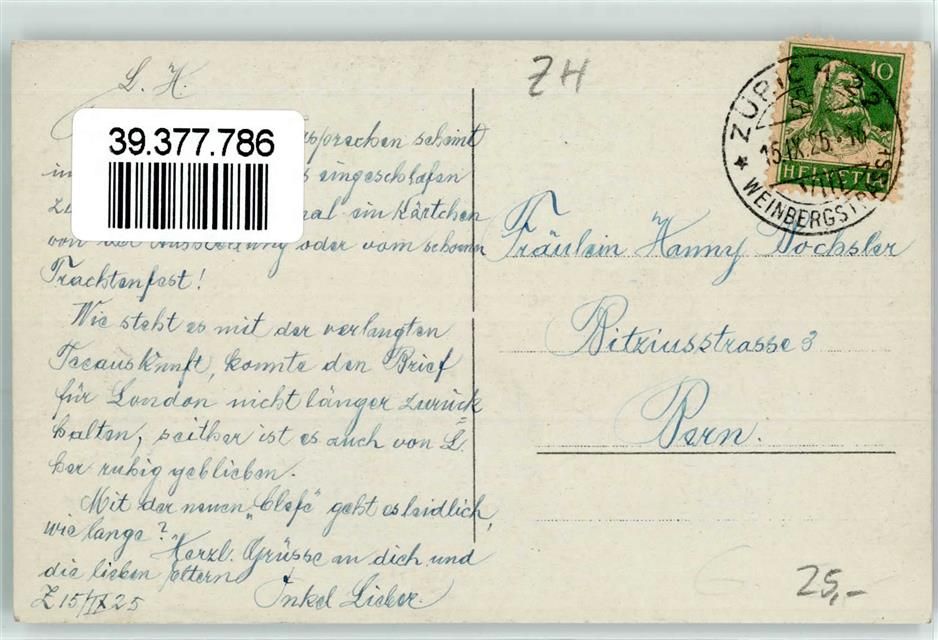 L. H.
39.377.786
sprechen scheint
eingeschlafen
mal ein Kärtchen
von der Ausstellung oder vom schoenen
Trachtenfest!
Wie steht es mit der verlangten
Teeauskunft, konnte den Brief
für London nicht länger zurück
halten, seither ist es auch von L.
her ruhig geblieben.
Mit der neuen „Chefe" geht es leidlich,
wie lange?
Herzl. Grüsse an dich und
die lieben Eltern
Onkel Lieber.
Z 15/IX 25
ZH
10
HELVETIA
ZÜRICH 22
15.IX.25
WEINBERGSTRASSE
Fräulein Hanny Dochsler
Bitziusstrasse 3
Bern.
25,-